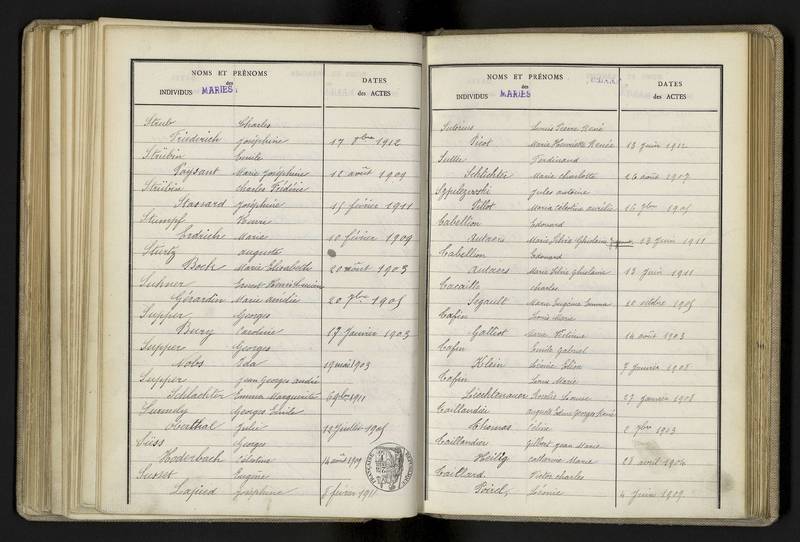 NOMS ET PRÉNOMS
des
INDIVIDUS MARIÉS
DATES
des ACTES
Strub Charles
Friedrich Joséphine 17 8bre 1912
Strübin Emile
Paysant Marie Joséphine 12 août 1909
Strübin Charles Frédéric
Stassard Joséphine 15 février 1911
Stumpf Henri
Erdrich Marie 10 février 1909
Sturtz Auguste
Bock Marie Elisabeth 20 août 1903
Suhner Ernest Henri Lucien
Gérardin Marie Amélie 20 7bre 1905
Supper Georges
Bury Caroline 17 Janvier 1903
Supper Georges
Nobs Ida 19 mai 1903
Supper Jean Georges André
Schlachter Emma Marguerite 6 9bre 1911
Georges Emile
Oberthal Julie 12 Juillet 1905
Süss Georges
Hoderbach Célestine 14 août 1909
Susset Eugène
Lajeud Joséphine 8 février 1911
NOMS ET PRÉNOMS
des
INDIVIDUS MARIÉS
DATES
des ACTES
Sutorius Louis Pierre René
Picot Marie Henriette Renée 13 juin 1912
Sutter Ferdinand
Schlichter Marie Charlotte 26 août 1907
Jules Antoine
Villot Maria Célestine Aurélie 16 9bre 1905
Tabellion Edouard
Autaers Marie Silvie Ghislaine 13 Juin 1911
Tabellion Edouard
Autaers Marie Silvie Ghislaine 13 Juin 1911
Charles
Segault Marie Eugénie Emma 10 octobre 1905
Tafin Louis Marie
Galliot Marie 14 août 1903
Tafin Emile Gabriel
Klein Léonie Elise 7 janvier 1908
Tafin Louis Marie
Liechtenauer Rosalie Louise 27 janvier 1908
Taillandier Auguste Edme Georges René
Thomas Céline 2 7bre 1903
Taillandier Gilbert Jean Marie
Heilig Catherine Marie 23 avril 1904
Taillard Victor Charles
Poirel Léonie 4 Juin 1909